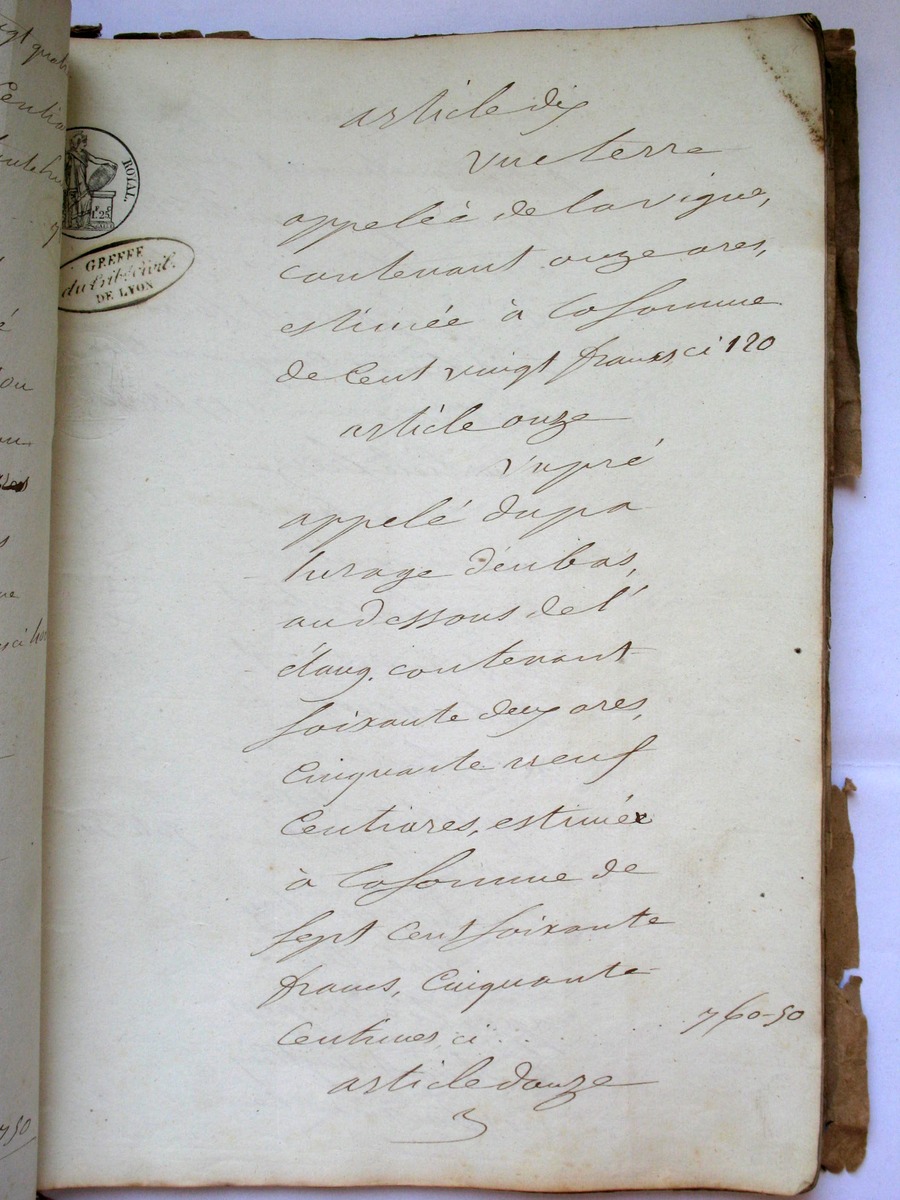 ROYAL.
1F. 25C
GREFFE
du trib. civil.
DE LYON
article dix
une terre
appelée de la vigne,
contenant onze ares,
estimée à la somme
de Cent vingt francs ci 120
article onze
un pré
appelé du pa
turage d'en bas,
au dessous de l'
étang. contenant
soixante deux ares,
Cinquante neuf
Centiares, estimée
à la somme de
sept Cent soixante
francs, Cinquante
Centimes, ci . . . . . 760-50
article douze